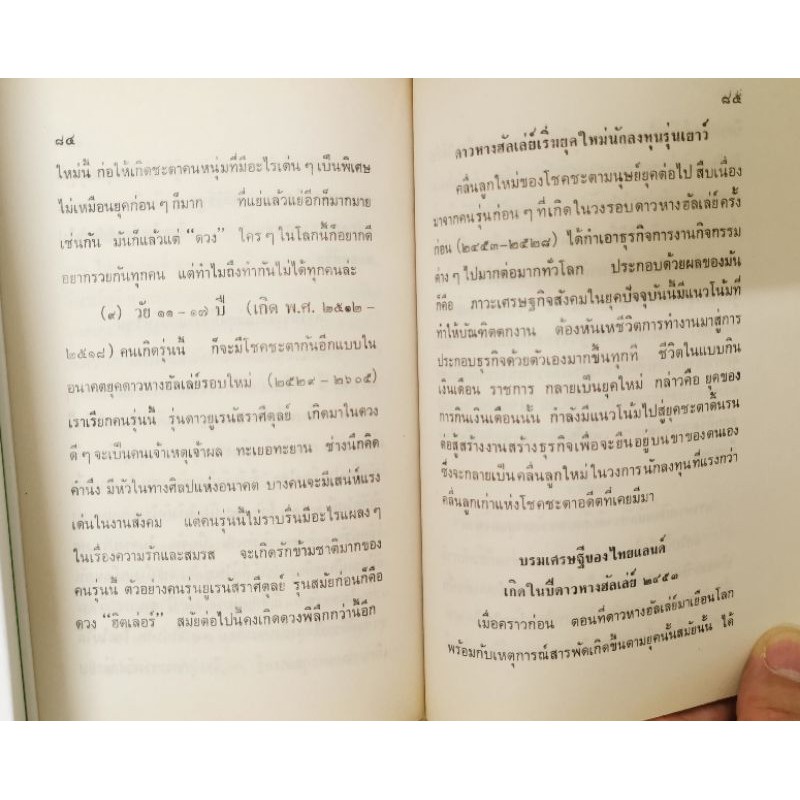 ๘๔
ใหม่นี้ ก่อให้เกิดชะตาคนหนุ่มที่มีอะไรเด่น ๆ เป็นพิเศษ
ไม่เหมือนยุคก่อน ๆ ก็มาก ที่แย่แล้วแย่อีกก็มากมาย
เช่นกัน มันก็แล้วแต่ “ดวง” ใคร ๆ ในโลกนี้ก็อยากดี
อยากรวยกันทุกคน แต่ทำไมถึงทำกันไม่ได้ทุกคนล่ะ
(๙) วัย ๑๑ – ๑๗ ปี (เกิด พ.ศ. ๒๕๑๒ –
๒๕๑๘) คนเกิดรุ่นนี้ ก็จะมีโชคชะตากันอีกแบบใน
อนาคตยุคดาวหางฮัลเล่ย์รอบใหม่ (๒๕๒๙ – ๒๖๐๕)
เราเรียกคนรุ่นนี้ รุ่นดาวยูเรนัสราศีตุลย์ เกิดมาในดวง
ดี ๆ จะเป็นคนเจ้าเหตุเจ้าผล ทะเยอทะยาน ช่างนึกคิด
คำนึง มีหัวในทางศิลปแห่งอนาคต บางคนจะมีเสน่ห์แรง
เด่นในงานสังคม แต่คนรุ่นนี้ไม่ราบรื่นมีอะไรแผลง ๆ
ในเรื่องความรักและสมรส จะเกิดรักข้ามชาติมากของ
คนรุ่นนี้ ตัวอย่างคนรุ่นยูเรนัสราศีตุลย์ รุ่นสมัยก่อนก็คือ
ดวง “ฮิตเล่อร์” สมัยต่อไปนี้คงเกิดดวงพิลึกกว่านี้อีก
๘๕
ดาวหางฮัลเล่ย์เริ่มยุคใหม่นักลงทุนรุ่นเยาว์
คลื่นลูกใหม่ของโชคชะตามนุษย์ยุคต่อไป สืบเนื่อง
มาจากคนรุ่นก่อน ๆ ที่เกิดในวงรอบดาวหางฮัลเล่ย์ครั้ง
ก่อน (๒๔๕๓–๒๕๒๘) ได้กำเอาธุรกิจการงานกิจกรรม
ต่าง ๆ ไปมากต่อมากทั่วโลก ประกอบด้วยผลของมัน
ก็คือ ภาวะเศรษฐกิจสังคมในยุคปัจจุบันนี้มีแนวโน้มที่
ทำให้บัณฑิตตกงาน ต้องหันเหชีวิตการทำงานมาสู่การ
ประกอบธุรกิจด้วยตัวเองมากขึ้นทุกที ชีวิตในแบบกิน
เงินเดือน ราชการ กลายเป็นยุคใหม่ กล่าวคือ ยุคของ
การกินเงินเดือนนั้น กำลังมีแนวโน้มไปสู่ยุคชะตาดิ้นรน
ต่อสู้สร้างงานสร้างธุรกิจเพื่อจะยืนอยู่บนขาของตนเอง
ซึ่งจะกลายเป็นคลื่นลูกใหม่ในวงการนักลงทุนที่แรงกว่า
คลื่นลูกเก่าแห่งโชคชะตาอดีตที่เคยมีมา
บรมเศรษฐีของไทยแลนด์
เกิดในปีดาวหางฮัลเล่ย์ ๒๔๕๓
เมื่อคราวก่อน ตอนที่ดาวหางฮัลเล่ย์มาเยือนโลก
พร้อมกับเหตุการณ์สารพัดเกิดขึ้นตามยุคนั้นสมัยนั้น ได้